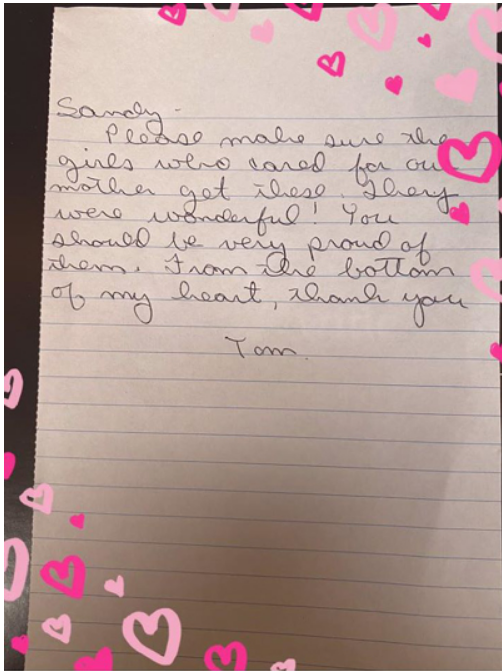 Sandy -
Please make sure the
girls who cared for our
mother get these. They
were wonderful! You
should be very proud of
them. From the bottom
of my heart, thank you
Tom.